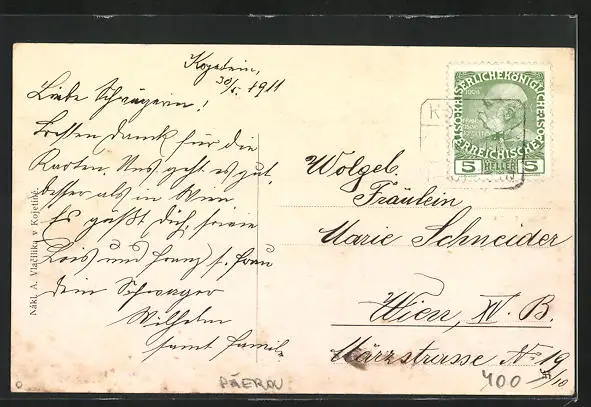 Kojetein,
30/5. 1911
Liebe Schwägerin!
Besten Dank für die
Karten. Uns geht es gut,
besser als in Wien.
Es grüßt Dich, sowie
Lois und Franz s. Frau
Dein Schwager
Wilhelm
samt Famil.
Nákl. A. Vlačílika v Kojetíně.
KAISERLICHE KÖNIGLICHE
ÖSTERREICHISCHE
5 HELLER 5
Wolgeb.
Fräulein
Marie Schneider
Wien, XV. B.
Märzstrasse No 19
/10
PÁEROU
400